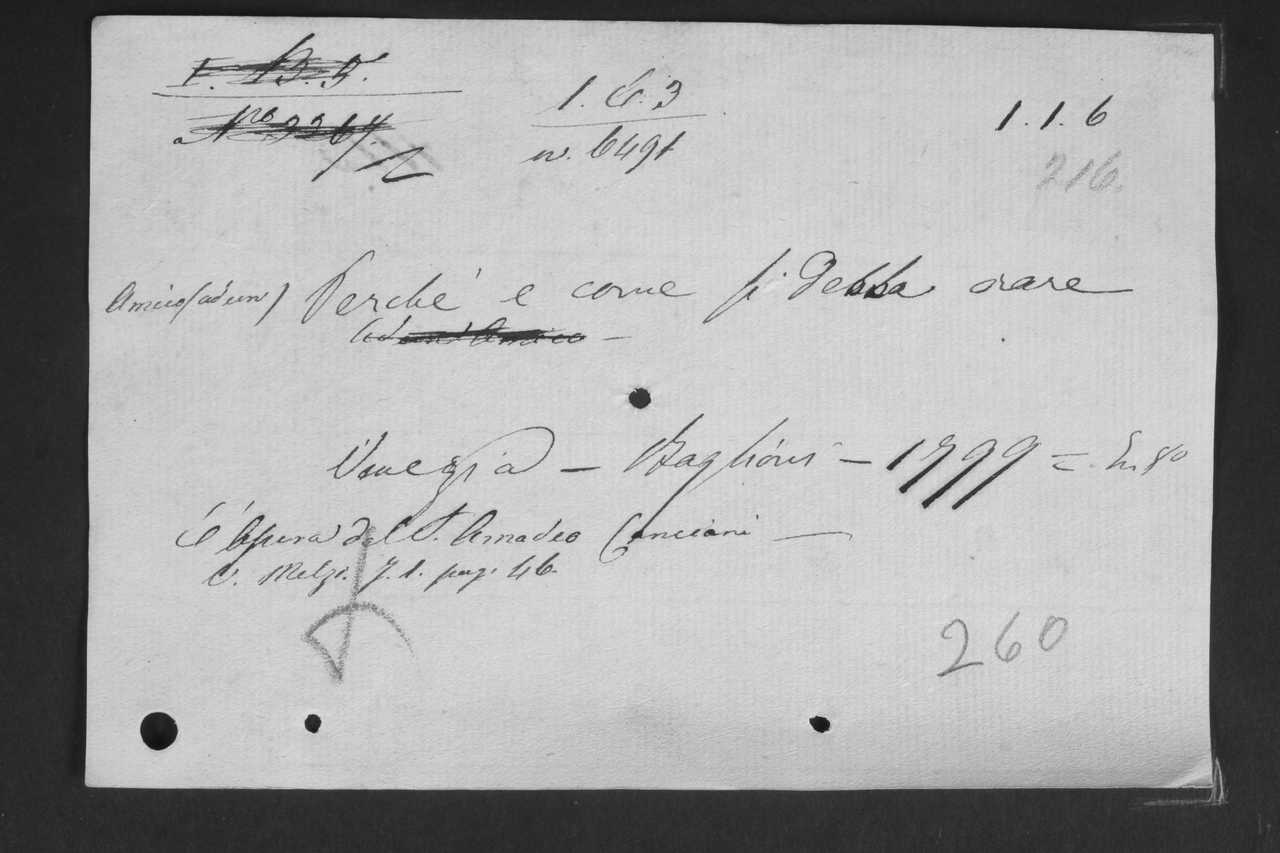 I. B. 5.
Nro 3264
1. C. 3
n. 6491
1. 1. 6
216.
Amico (ad un) Perché e come si debba orare
Ad un Amico —
Venezia — Baglioni — 1799 = In 8o
È Opera del P. Amadeo Canciani —
V. Melzi. T. 1. pag. 46.
260